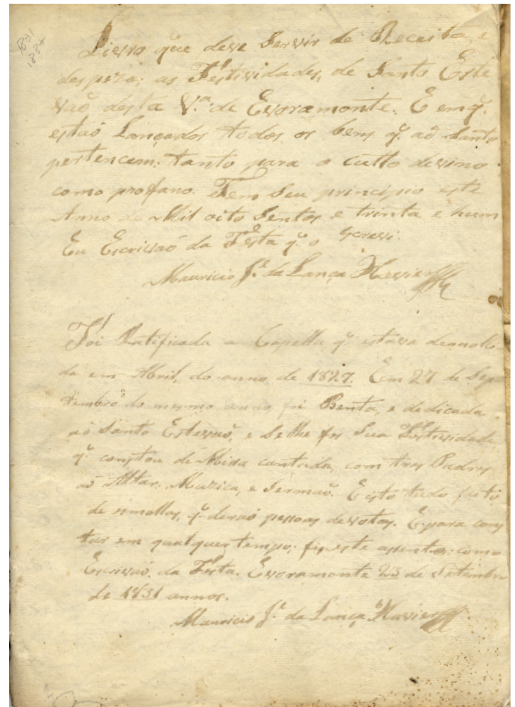 1831
1834
Livro que deve Servir de Receita, e
despeza; as Festividades, de Santo Este
vaõ desta V.ª de Evoramonte. E em q.
estaõ Lançados todos os bens q̃ aõ Santo
pertencem. tanto para o culto devino
como profano. Tem Seu principio este
Anno de Mil oito Sentos e trinta e hum
Eu Escrivaõ da Festa q̃ o Screvi.
Mauricio J.ᵉ da Lança Xavier
Foi Ratificada a Capella q̃ estava demoli
da em Abril, do anno, de 1827. Em 27 de Sep
tembro do mesmo anno, foi Benta, e dedicada
aõ Santo Estevaõ, e Se lhe fes Sua Festividade
q̃ constou de Missa cantada, com tres Padres
aõ Altar. Muzica, e Sermaõ. E isto tudo feito
de esmollas, q̃ deraõ pessoas devotas. E para cons
tar em qualquer tempo. fis este assento como
Escrivaõ, da Festa. Evoramonte 23 de Setembro
de 1831 annos.
Mauricio J.ᵉ da Lança Xavier